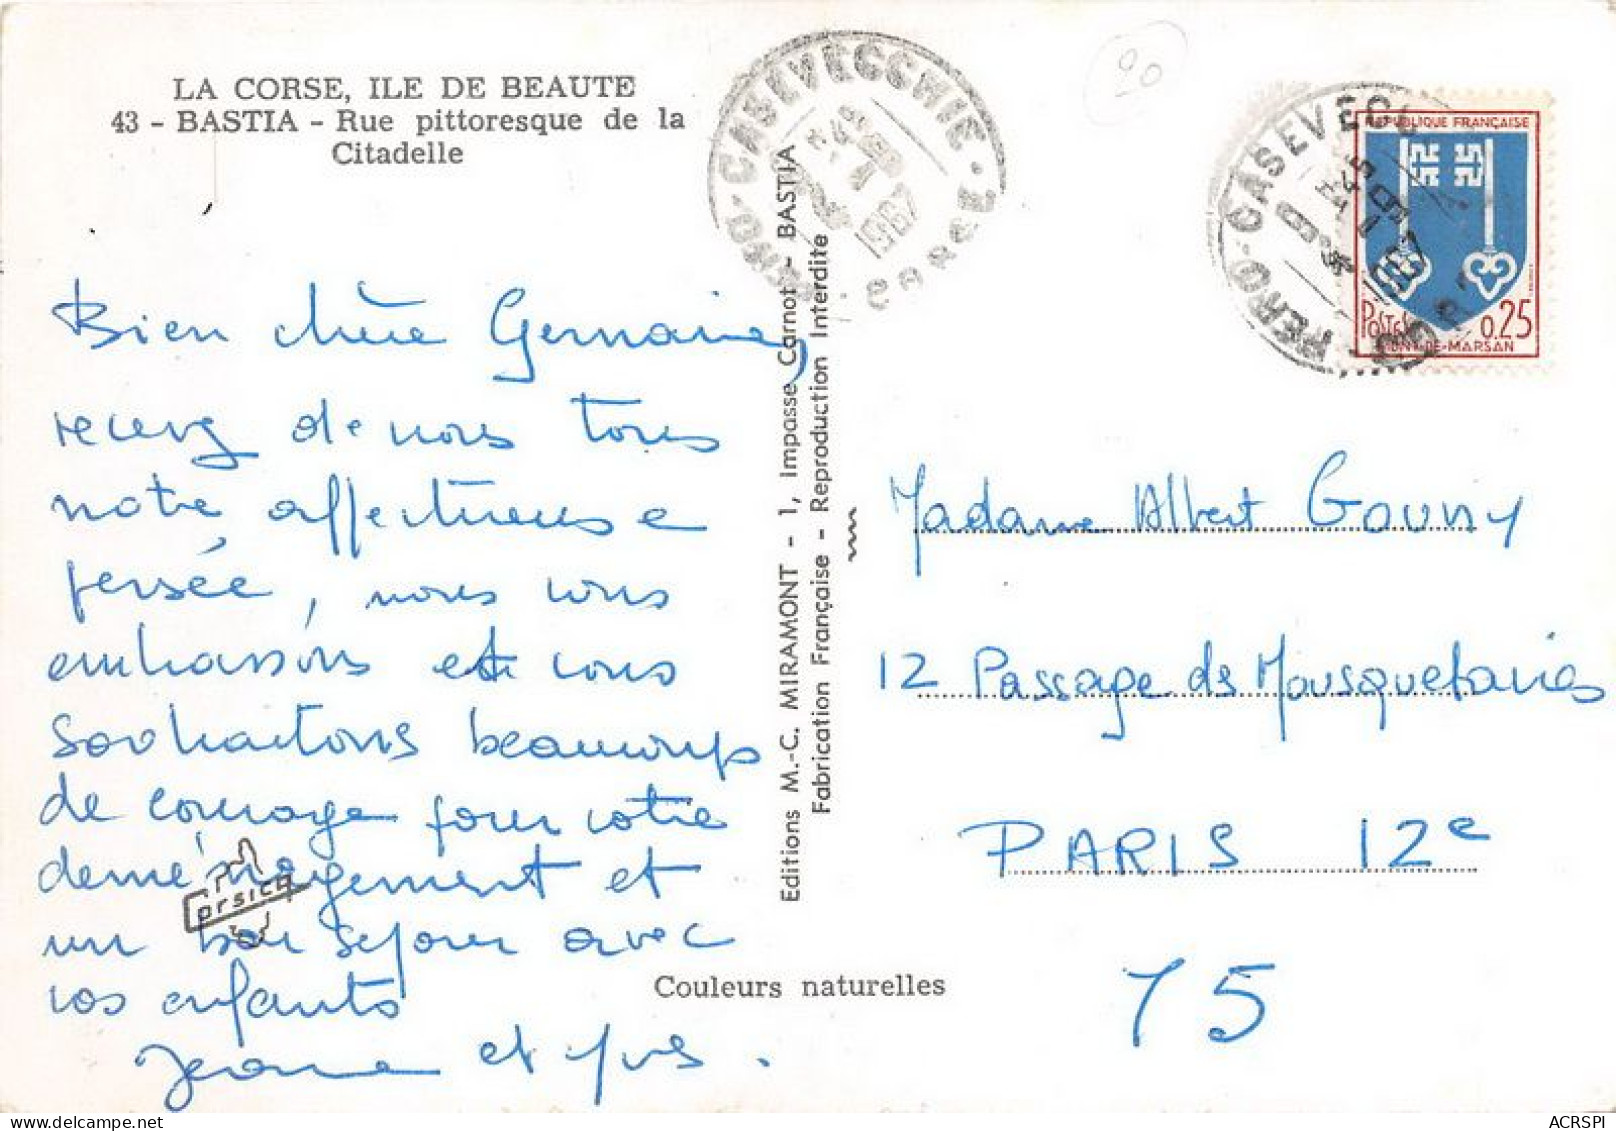 LA CORSE, ILE DE BEAUTE
43 - BASTIA - Rue pittoresque de la
Citadelle
Bien chère Germaine,
recevez de nous tous
notre affectueuse
pensée, nous vous
embrassons et vous
souhaitons beaucoup
de courage pour votre
deménagement et
un bon séjour avec
vos enfants
Jeanne et Yves.
Corsica
Editions M.-C. MIRAMONT - 1, Impasse Carnot - BASTIA
Fabrication Française - Reproduction Interdite
Couleurs naturelles
20
CASEVECCHIE
CORSE
1967
PERO-CASEVECC
1967
REPUBLIQUE FRANÇAISE
POSTES 0,25
MONT-DE-MARSAN
Madame Albert Gouny
12 Passage des Mousquetaires
PARIS 12e
75
ACRSPI